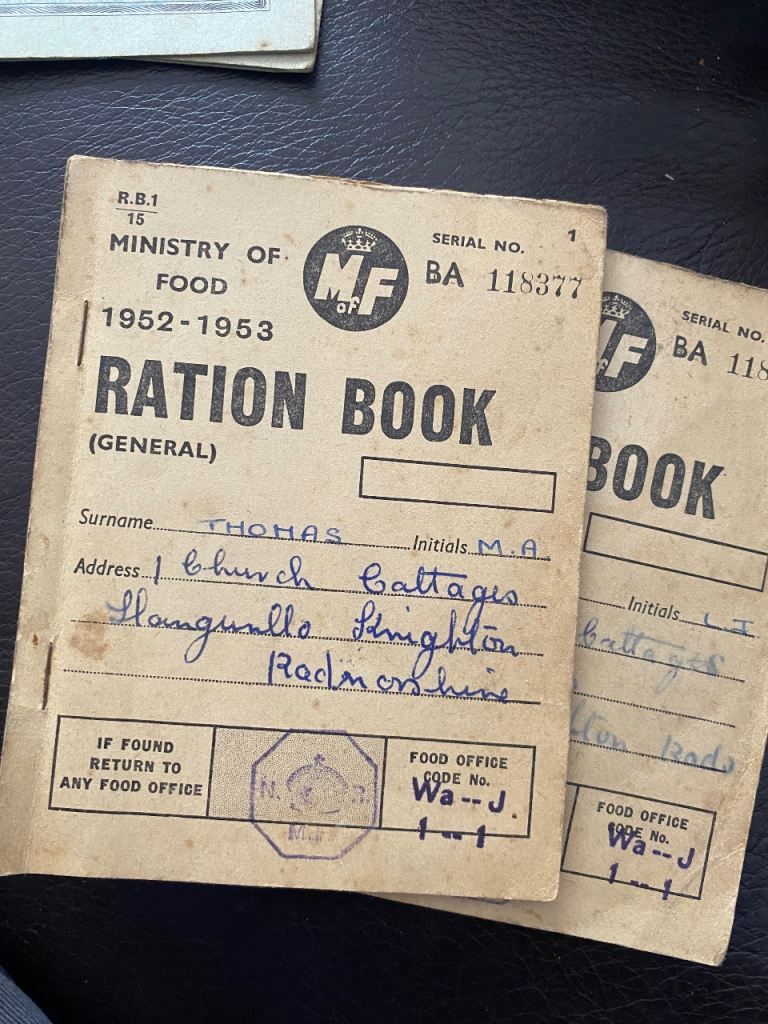 R.B.1
15
MINISTRY OF
FOOD
1952-1953
M of F
SERIAL NO. 1
BA 118377
RATION BOOK
(GENERAL)
Surname THOMAS Initials M.A.
Address 1 Church Cottages
Llangunllo Knighton
Radnorshire
IF FOUND
RETURN TO
ANY FOOD OFFICE
FOOD OFFICE
CODE No.
Wa -- J.
1 -- 1
SERIAL NO.
BA 118
BOOK
Initials L I
Cottages
Rads
FOOD OFFICE
CODE No.
Wa -- J
1 -- 1